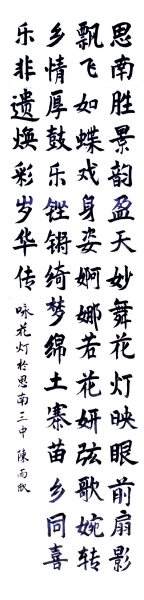 思南胜景韵盈天妙舞花灯映眼前扇影
飘飞如蝶戏身姿婀娜若花妍弦歌婉转
乡情厚鼓乐铿锵绮梦绵土寨苗乡同喜
乐非遗焕彩岁华传
咏花灯於思南三中 陳雨